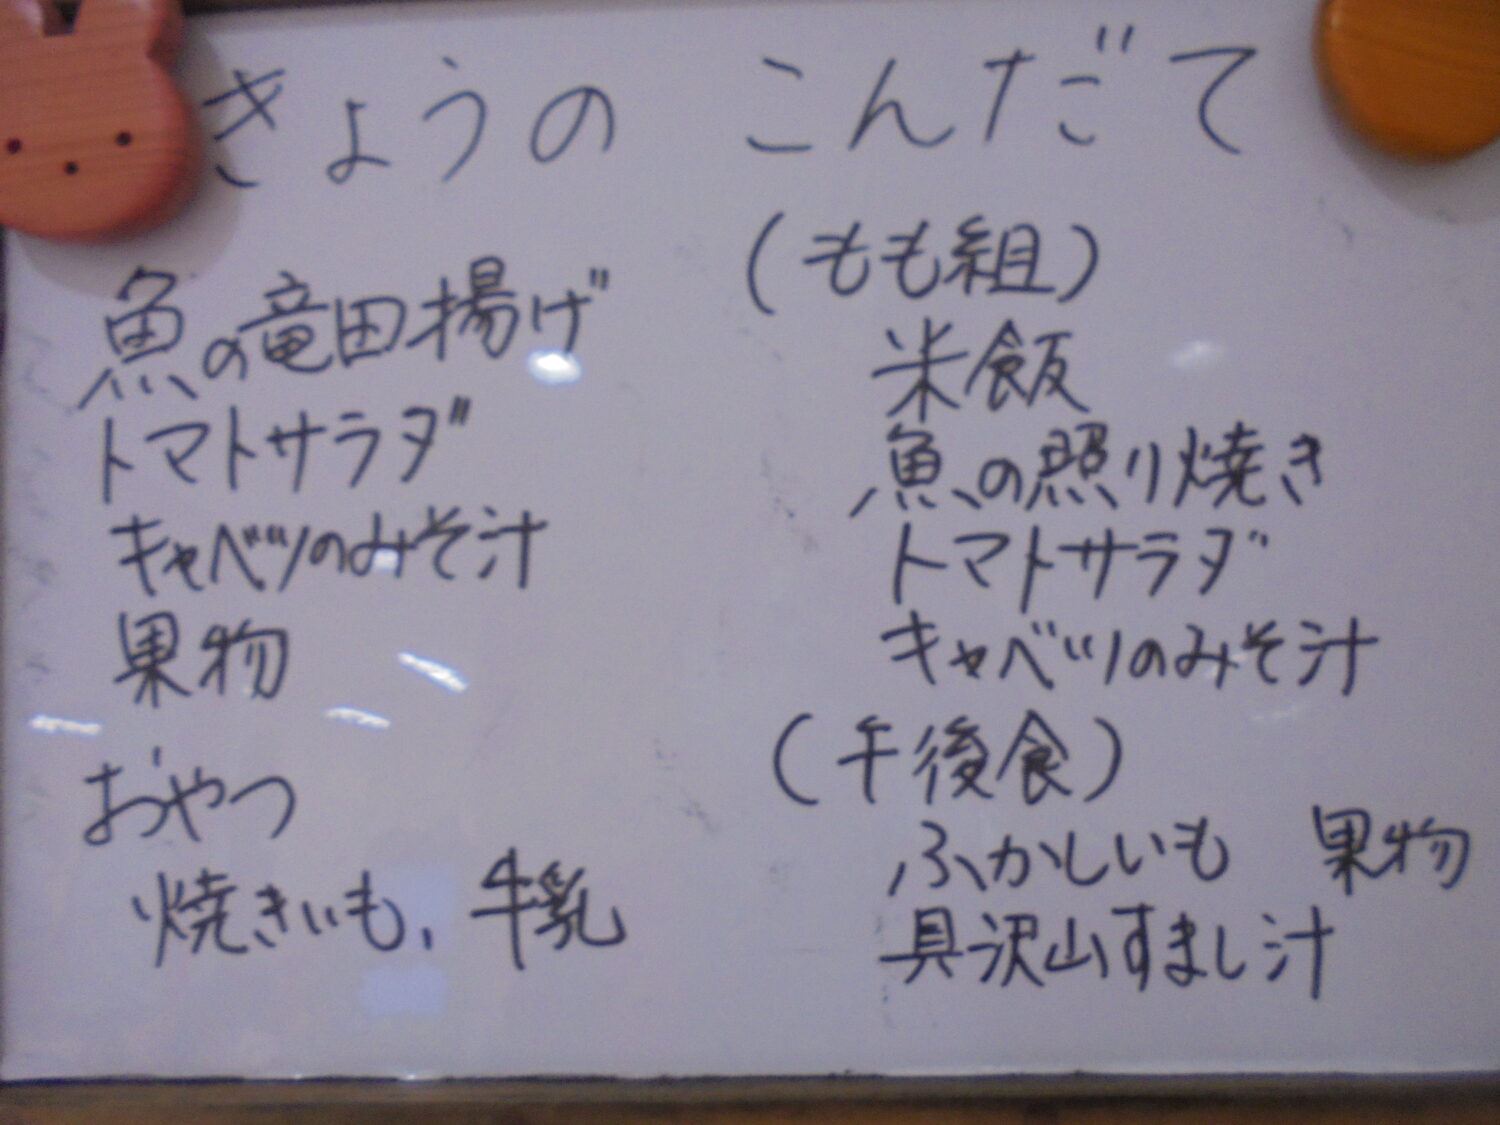 きょうの こんだて
魚の竜田揚げ
トマトサラダ
キャベツのみそ汁
果物
おやつ
焼きいも、牛乳
(もも組)
米飯
魚の照り焼き
トマトサラダ
キャベツのみそ汁
(午後食)
ふかしいも 果物
具沢山すまし汁